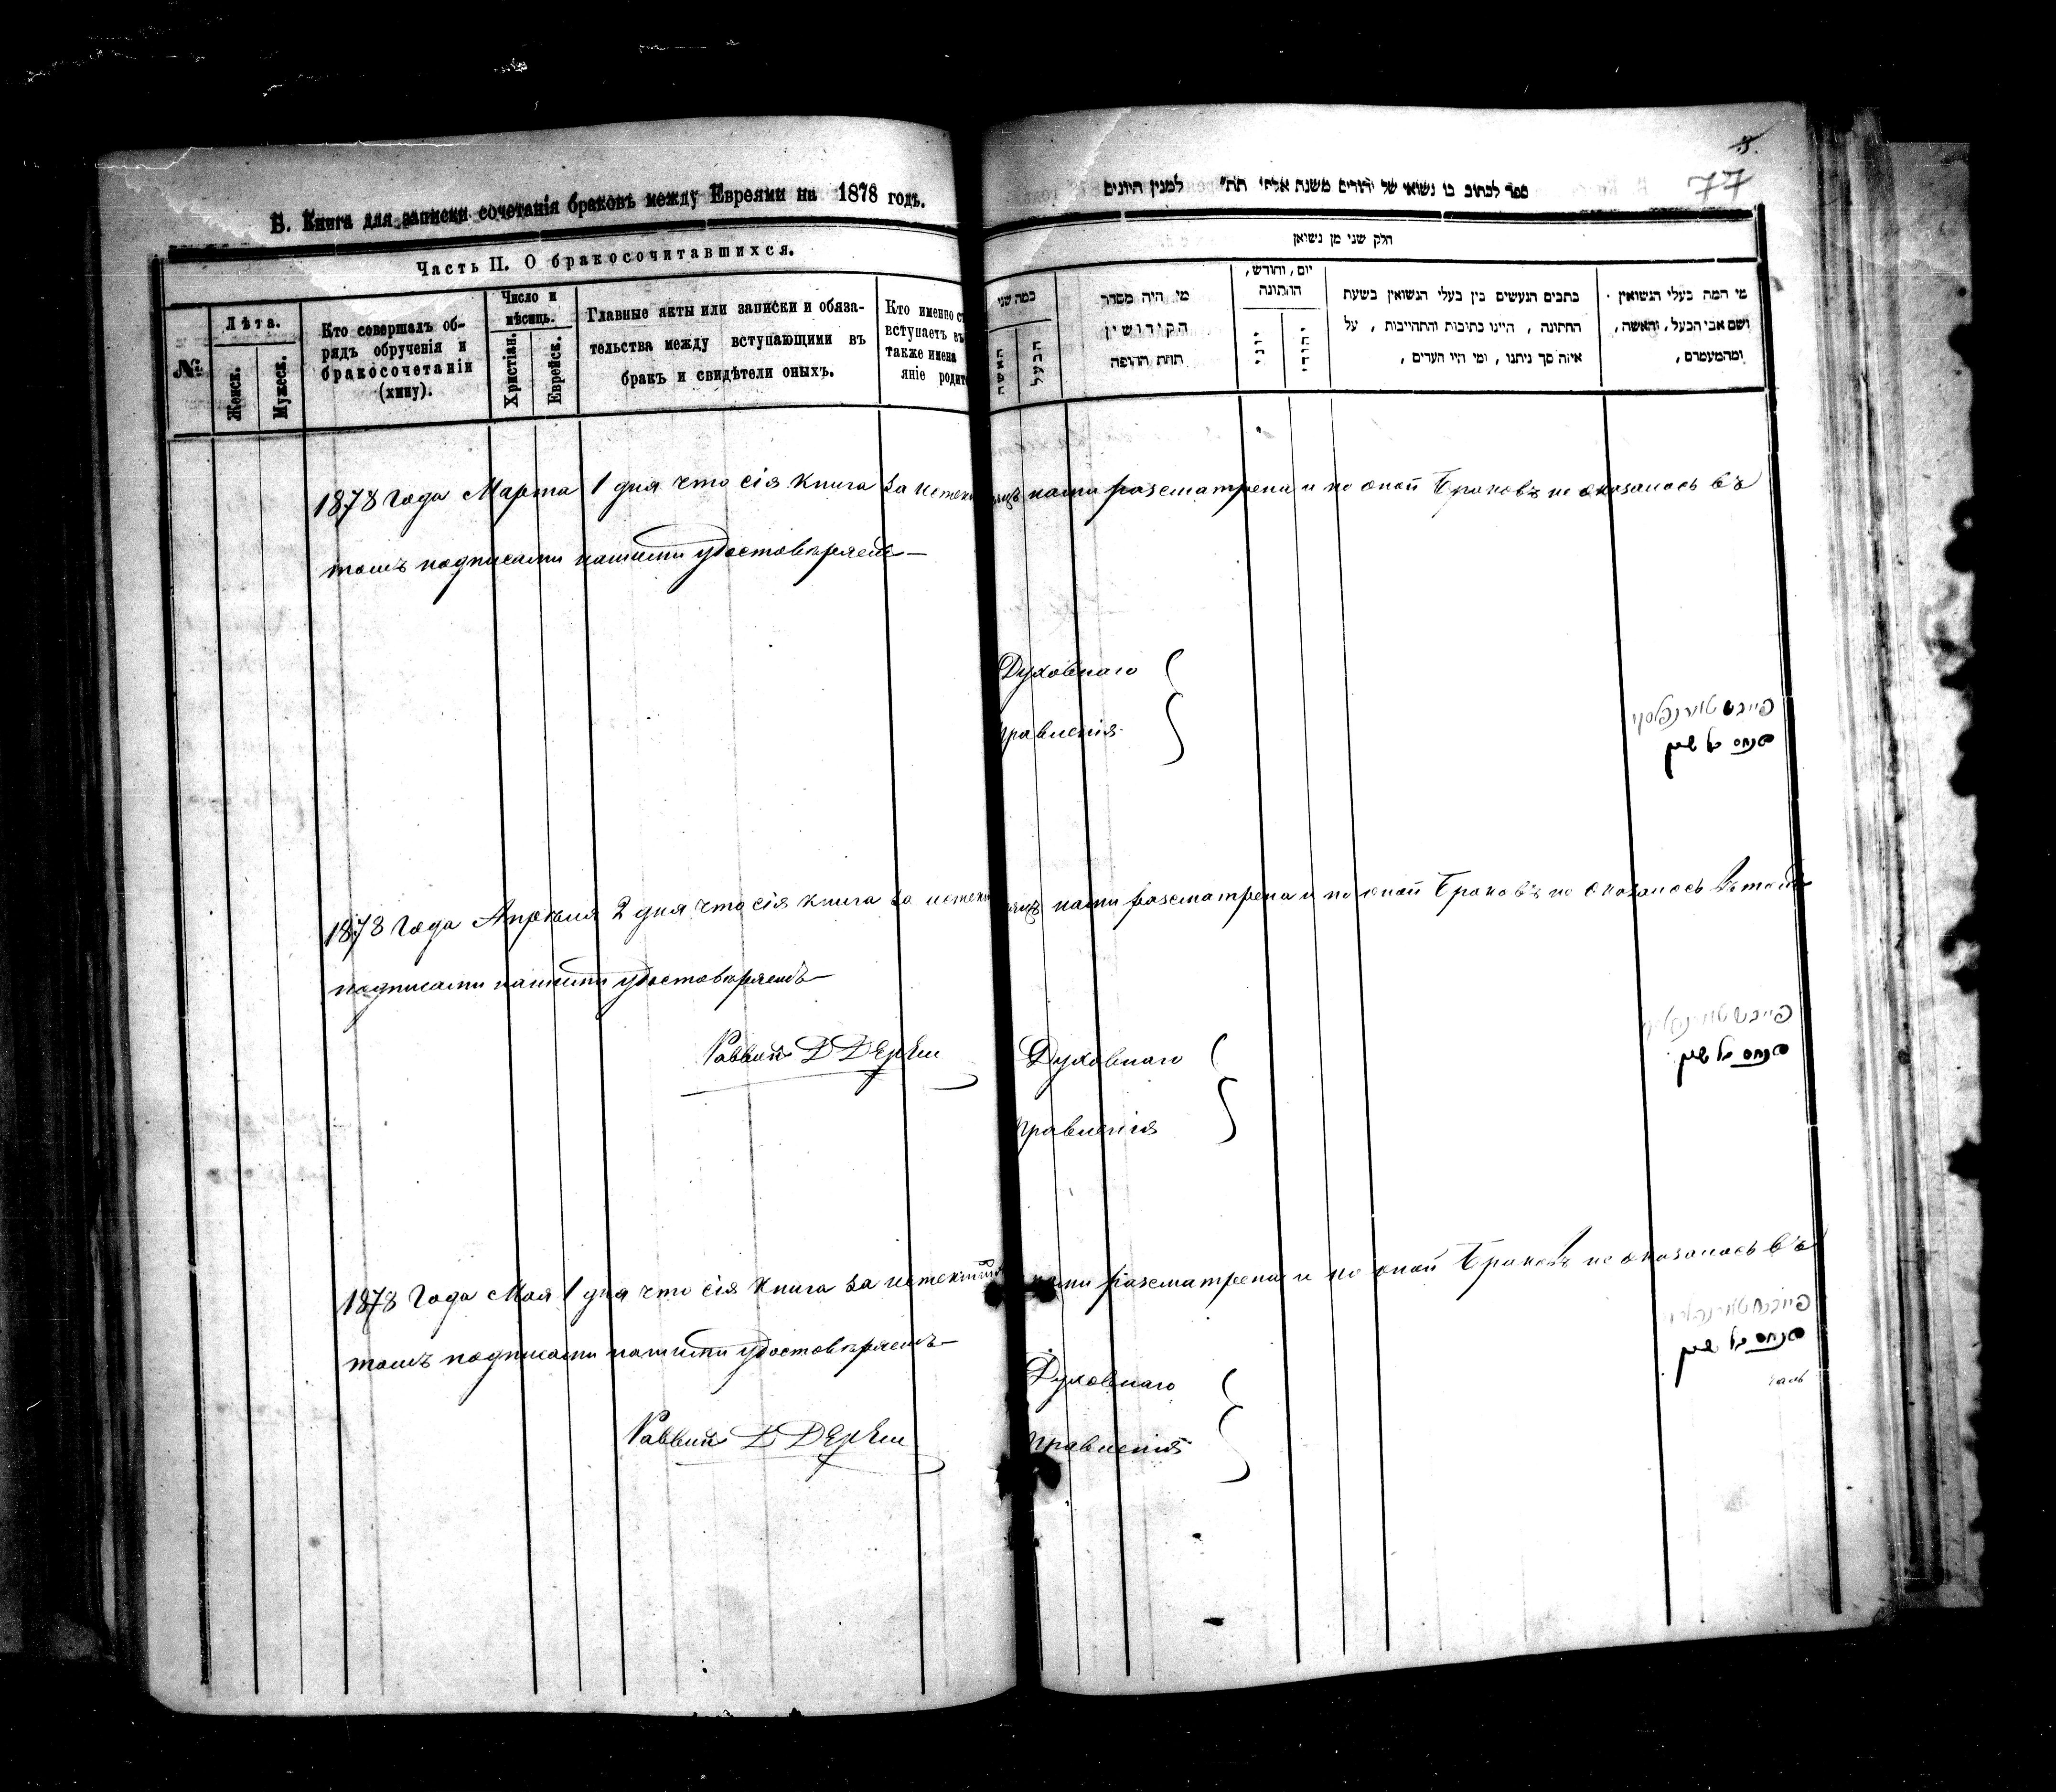 В. Книга для записки сочетанія браковъ между Евреями на 1878 годъ.
Часть II. О бракосочитавшихся.
№
Лѣта.
Женск.
Мужеск.
Кто совершалъ об-
рядъ обрученія и
бракосочетанія
(хину).
Число и
мѣсяцъ.
Христіан.
Еврейск.
Главные акты или записки и обяза-
тельства между вступающими въ
бракъ и свидѣтели оныхъ.
Кто именно
вступаетъ въ
также имена
яніе
77
ספר לכתוב בו נשואי של יהודים משנת אלף למנין היונים
חלק שני מן נשואין
כמה שני
האשה
הבעל
מי היה מסדר
הקידושין
תחת החופה
יום, וחודש,
החתונה
יוני
יהודי
כתבים הנעשים בין בעלי הנשואין בשעת
החתונה, היינו כתובות והתחייבות, על
איזה סך ניתנו, ומי היו העדים,
מי המה בעלי הנשואין
ושם אבי הבעל, והאשה,
ומהמעמדם,
1878 Года Марта 1 дня что сія книга за нами разсматрена и по оной Браковъ не оказалось въ
томъ подписами нашими удостовѣряемъ
Духовнаго
правленія
1878 Года Апрѣля 2 дня что сія книга за нами разсматрена и по оной Браковъ не оказалось въ томъ
подписами нашими удостовѣряемъ
Раввинъ Д
Духовнаго
правленія
1878 Года Мая 1 дня что сія книга за нами разсматрена и по оной Браковъ не оказалось въ
томъ подписами нашими удостовѣряемъ
Духовнаго
Раввинъ Д
правленія